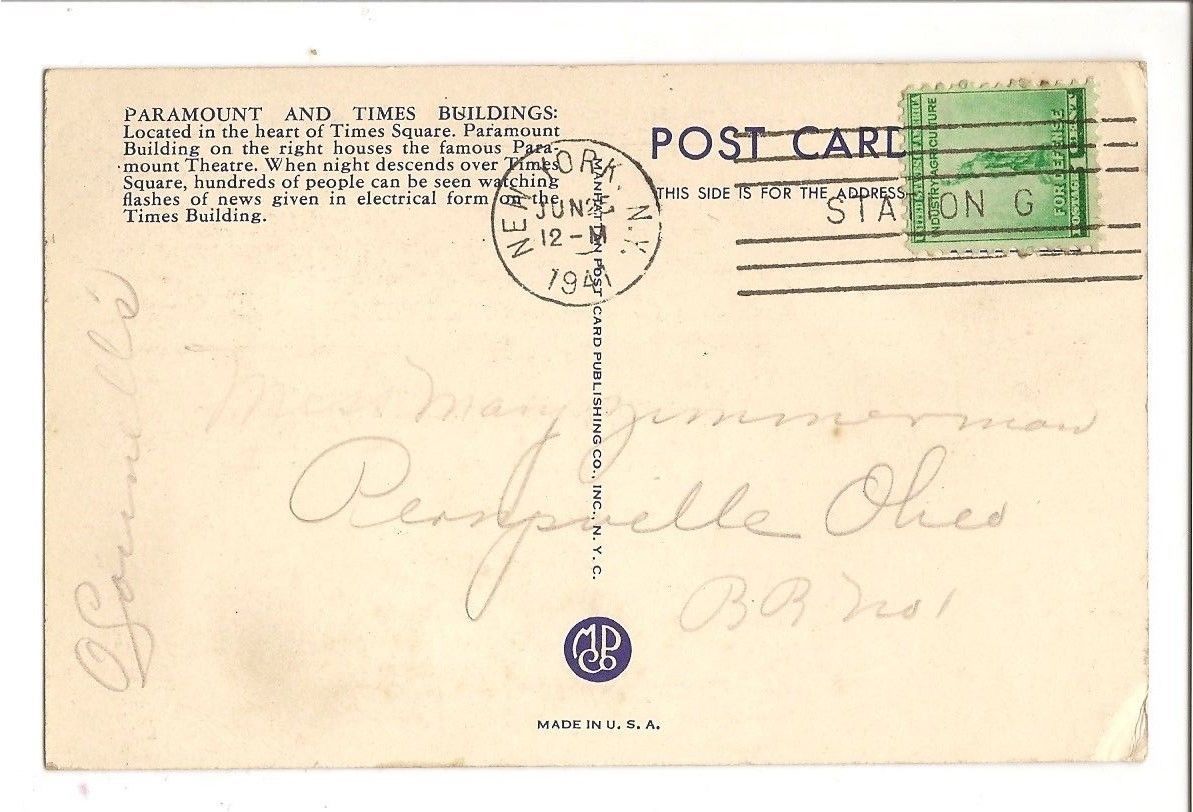 PARAMOUNT AND TIMES BUILDINGS:
Located in the heart of Times Square. Paramount
Building on the right houses the famous Para-
mount Theatre. When night descends over Times
Square, hundreds of people can be seen watching
flashes of news given in electrical form on the
Times Building.
POST CARD
THIS SIDE IS FOR THE ADDRESS
NEW YORK, N.Y.
JUN 25
12-M
1941
STATION G
INDUSTRY AGRICULTURE
FOR DEFENSE
MANHATTAN POST CARD PUBLISHING CO., INC., N. Y. C.
Miss Mary Zimmerman
Ohio
RR No 1
MPCo
MADE IN U. S. A.